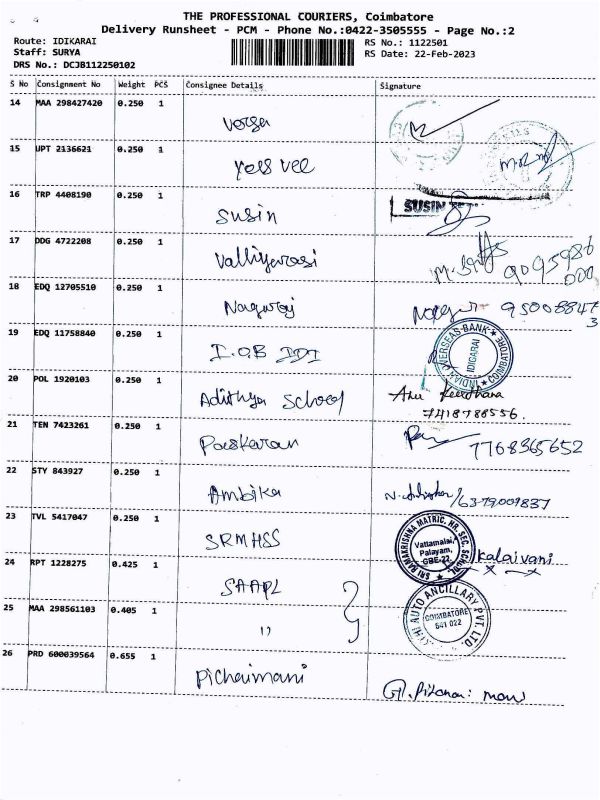 THE PROFESSIONAL COURIERS, Coimbatore
Delivery Runsheet - PCM - Phone No.:0422-3505555 - Page No.:2
Route: IDIKARAI
Staff: SURYA
DRS No.: DCJB112250102
RS No.: 1122501
RS Date: 22-Feb-2023
S No Consignment No Weight PCS Consignee Details Signature
14 MAA 298427420 0.250 1
15 UPT 2136621 0.250 1
16 TRP 4408190 0.250 1 Susin
SUSIN
17 DDG 4722208 0.250 1 Valliyarasi
18 EDQ 12705510 0.250 1 Nagaraj
19 EDQ 11758840 0.250 1 I.O.B IDI
INDIAN OVERSEAS BANK COIMBATORE
IDIGARAI
20 POL 1920103 0.250 1 Adithya School Keerthana
7418786556.
21 TEN 7423261 0.250 1 Paskaran 7708365652
22 STY 843927 0.250 1 Ambika
23 TVL 5417047 0.250 1 SRMHSS
SRI RAMAKRISHNA MATRIC. HR. SEC. SCHOOL
Vattamalai,
Palayam,
CBE-22
kalaivani
24 RPT 1228275 0.425 1 SAAPL
AUTO ANCILLARY PVT. LTD.
COIMBATORE
641 022
25 MAA 298561103 0.405 1 "
26 PRD 600039564 0.655 1 Pichaimani